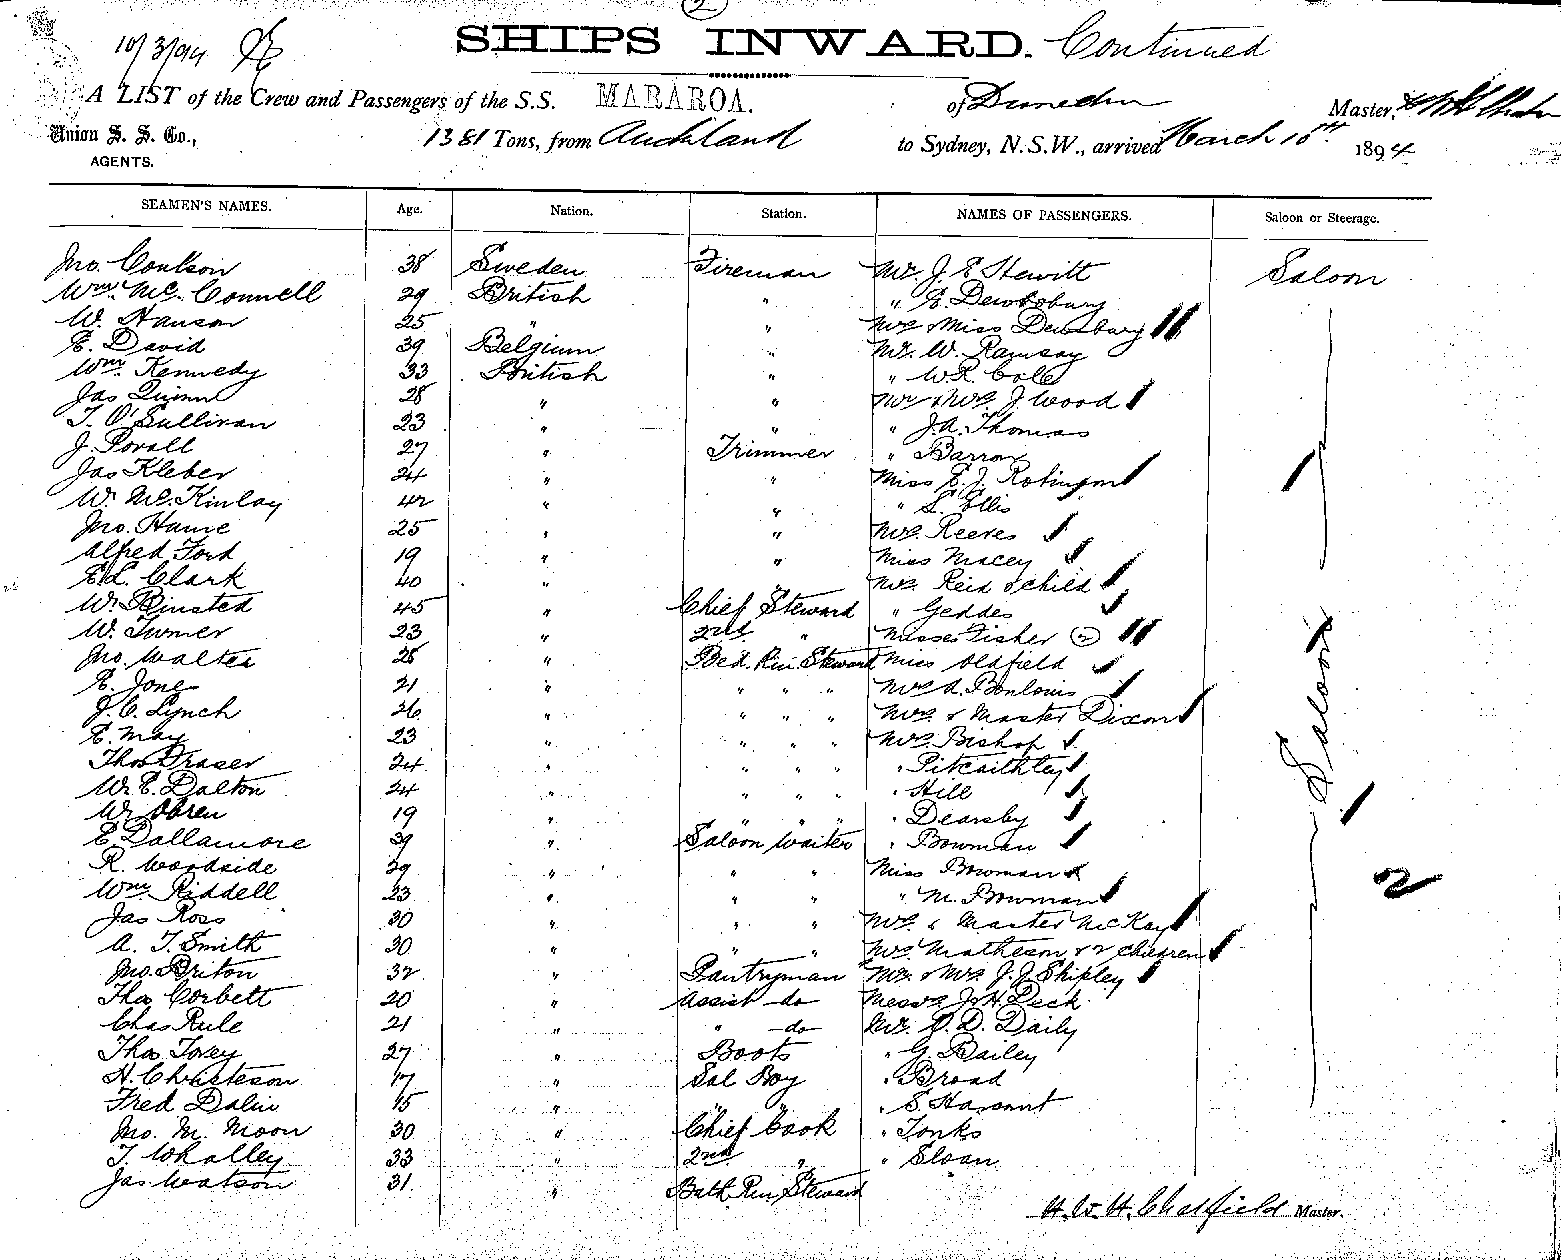 2
10/3/94
SHIPS INWARD. Continued
A LIST of the Crew and Passengers of the S.S. MARAROA. of Dunedin Master,
Union S. S. Co., 1381 Tons, from Auckland to Sydney, N.S.W., arrived March 10th 1894
AGENTS.
SEAMEN'S NAMES. Age. Nation. Station. NAMES OF PASSENGERS. Saloon or Steerage.
Jno. Coulson 38 Sweden Fireman Mr. J E Hewitt Saloon
Wm. Mc. Connell 29 British " " E. Dewbsbury
W. Hanson 25 " " Mrs & Miss Dewsbury
E. David 39 Belgium " Mr. W. Ramsay
Wm. Kennedy 33 British " " W.R. Cole
Jas Quinn 28 " " Mr & Mrs J Wood
T. O'Sullivan 23 " " " J.A. Thomas
J. Povall 27 " Trimmer " Barron
Jas Kleber 24 " " Miss E. J. Robinson
W. Mc. Kinlay 42 " " " L. Ellis
Jno. Hame 25 " " Mrs. Reeves
Alfred Ford 19 " " Miss Macey
E.L. Clark 40 " Mrs. Reid & child
W. Binsted 45 " Chief Steward " Geddes
W. Turner 23 " 2nd " Misses Fisher 2 Saloon
Jno. Walter 28 " Bed. Rm. Steward Miss Oldfield
E. Jones 21 " " " " Mrs A. Bonlouis
J. C. Lynch 26 " " " " Mrs. & Master Dixon
E. May 23 " " " " Mrs. Bishop
Thos Fraser 24 " " " " " Pitcaithley
W. E. Dalton 24 " " " " " Hill
W. Obren 19 " " " " " Dearsby
E. Dallamore 39 " Saloon Waiter " Bowman
R. Woodside 29 " " " Miss Bowman 2
Wm. Riddell 23 " " " " M. Bowman
Jas Ross 30 " " " Mrs. & Master McKay
A. T. Smith 30 " " " Mrs. Matheson & 2 children
Jno. Briton 32 " Pantryman Mr. & Mrs J. J. Shipley
Thos Corbett 20 " Assist do Messrs J. H. Deck
Chas Rule 21 " " do Mr. O. D. Daily
Thos Tovey 27 " Boots " G. Bailey
H. Christeson 17 " Sal Boy " Broad
Fred Dalin 15 " " " " S. Harcourt
Jno. M. Moon 30 " Chief Cook " Tonks
T. Whalley 33 " 2nd " " Sloan
Jas Watson 31 " Bath Rm. Steward
H. W. H. Chatfield Master.